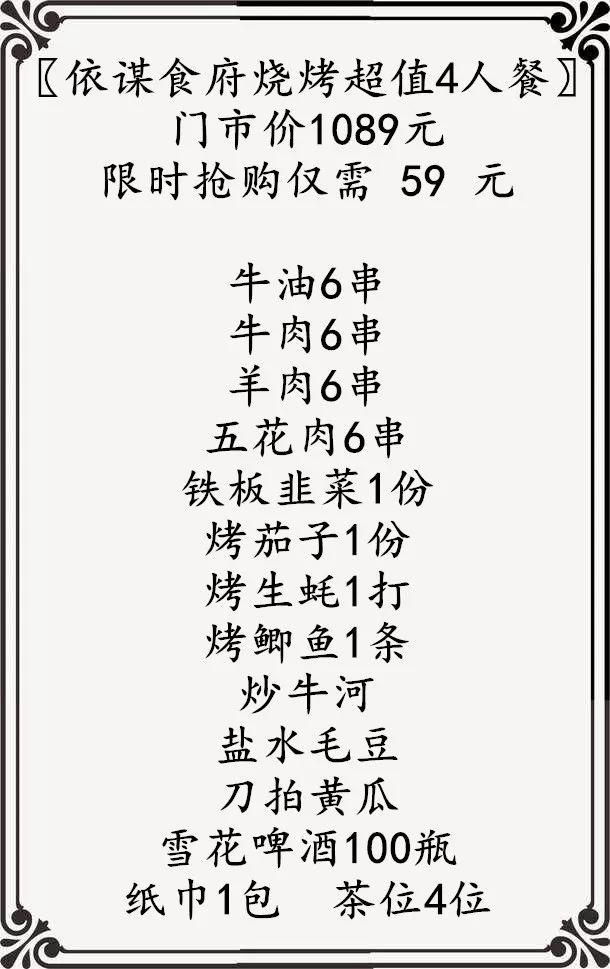 〖依谋食府烧烤超值4人餐〗
门市价1089元
限时抢购仅需 59 元
牛油6串
牛肉6串
羊肉6串
五花肉6串
铁板韭菜1份
烤茄子1份
烤生蚝1打
烤鲫鱼1条
炒牛河
盐水毛豆
刀拍黄瓜
雪花啤酒100瓶
纸巾1包 茶位4位